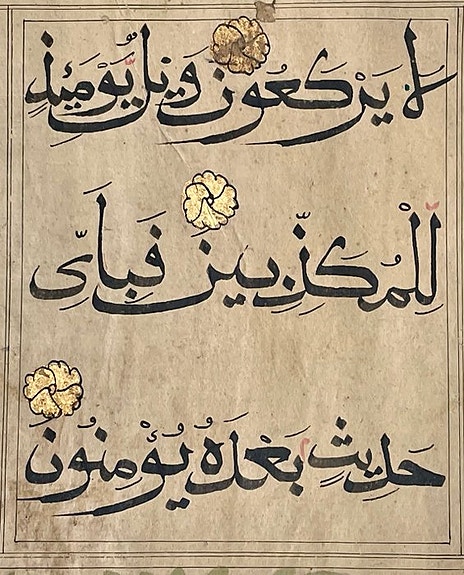 لَا يَرْكَعُونَ وَيْلٌ يَوْمَئِذٍ
لِلْمُكَذِّبِينَ فَبِأَيِّ
حَدِيثٍ بَعْدَهُ يُؤْمِنُونَ